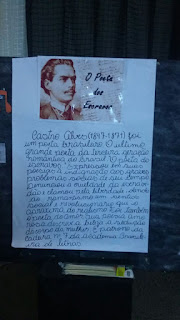 O Poeta
dos
Escravos
Castro Alves (1847-1871) foi
um poeta brasileiro. O último
grande poeta da terceira geração
romântica no Brasil. "O poeta dos
escravos". Expressou em suas
poesias a indignação aos graves
problemas sociais de seu tempo.
Denunciou a crueldade da escravi-
dão e clamou pela liberdade, dando
ao romantismo um sentido
social e revolucionário que o
aproxima do realismo. Foi também
o poeta do amor, sua poesia amo-
rosa descreve a beleza e a sedução
do corpo da mulher. É patrono da
cadeira nº 7 da Academia Brasilei-
ra de Letras.